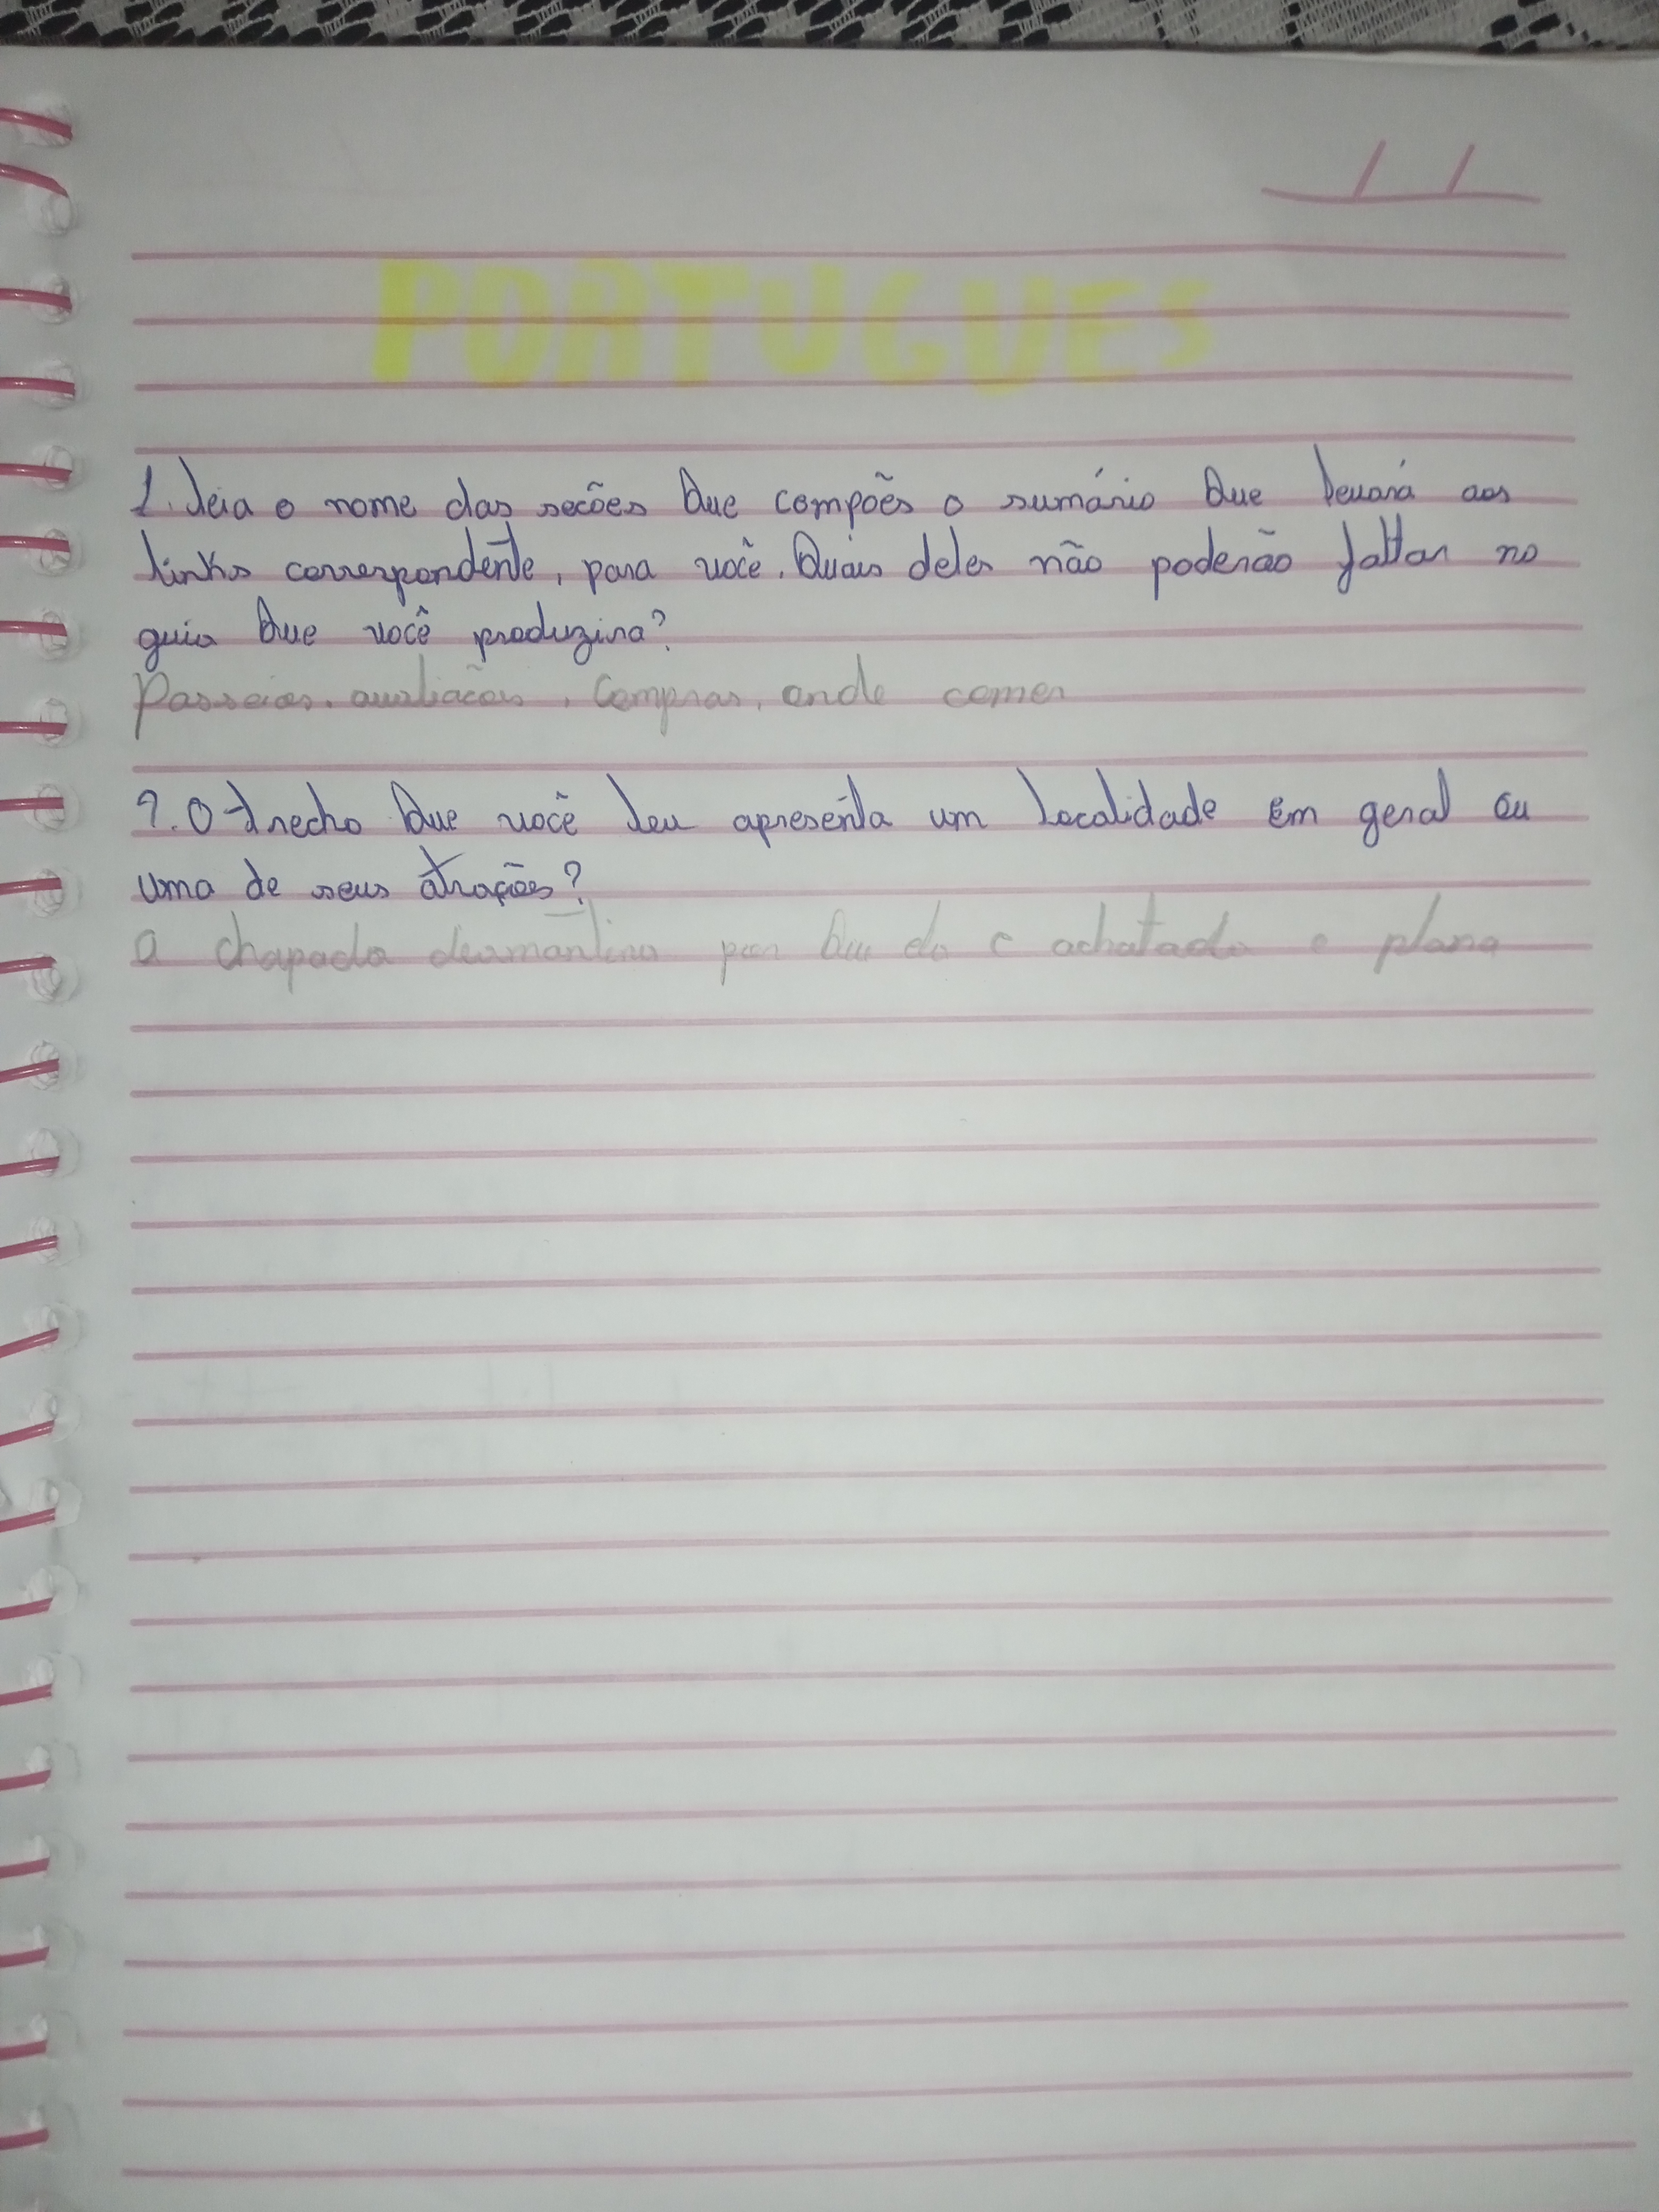 PORTUGUES
1. Leia o nome das secões que compões o sumário que levará aos
links correspondente, para você. Quais deles não poderão faltar no
guia que você produzira?
Passeios, avaliacões, Compras, onde comer
2. O trecho que você leu apresenta um localidade em geral ou
uma de seus atrações?
a chapada diamantina por que ela e achatada e plana